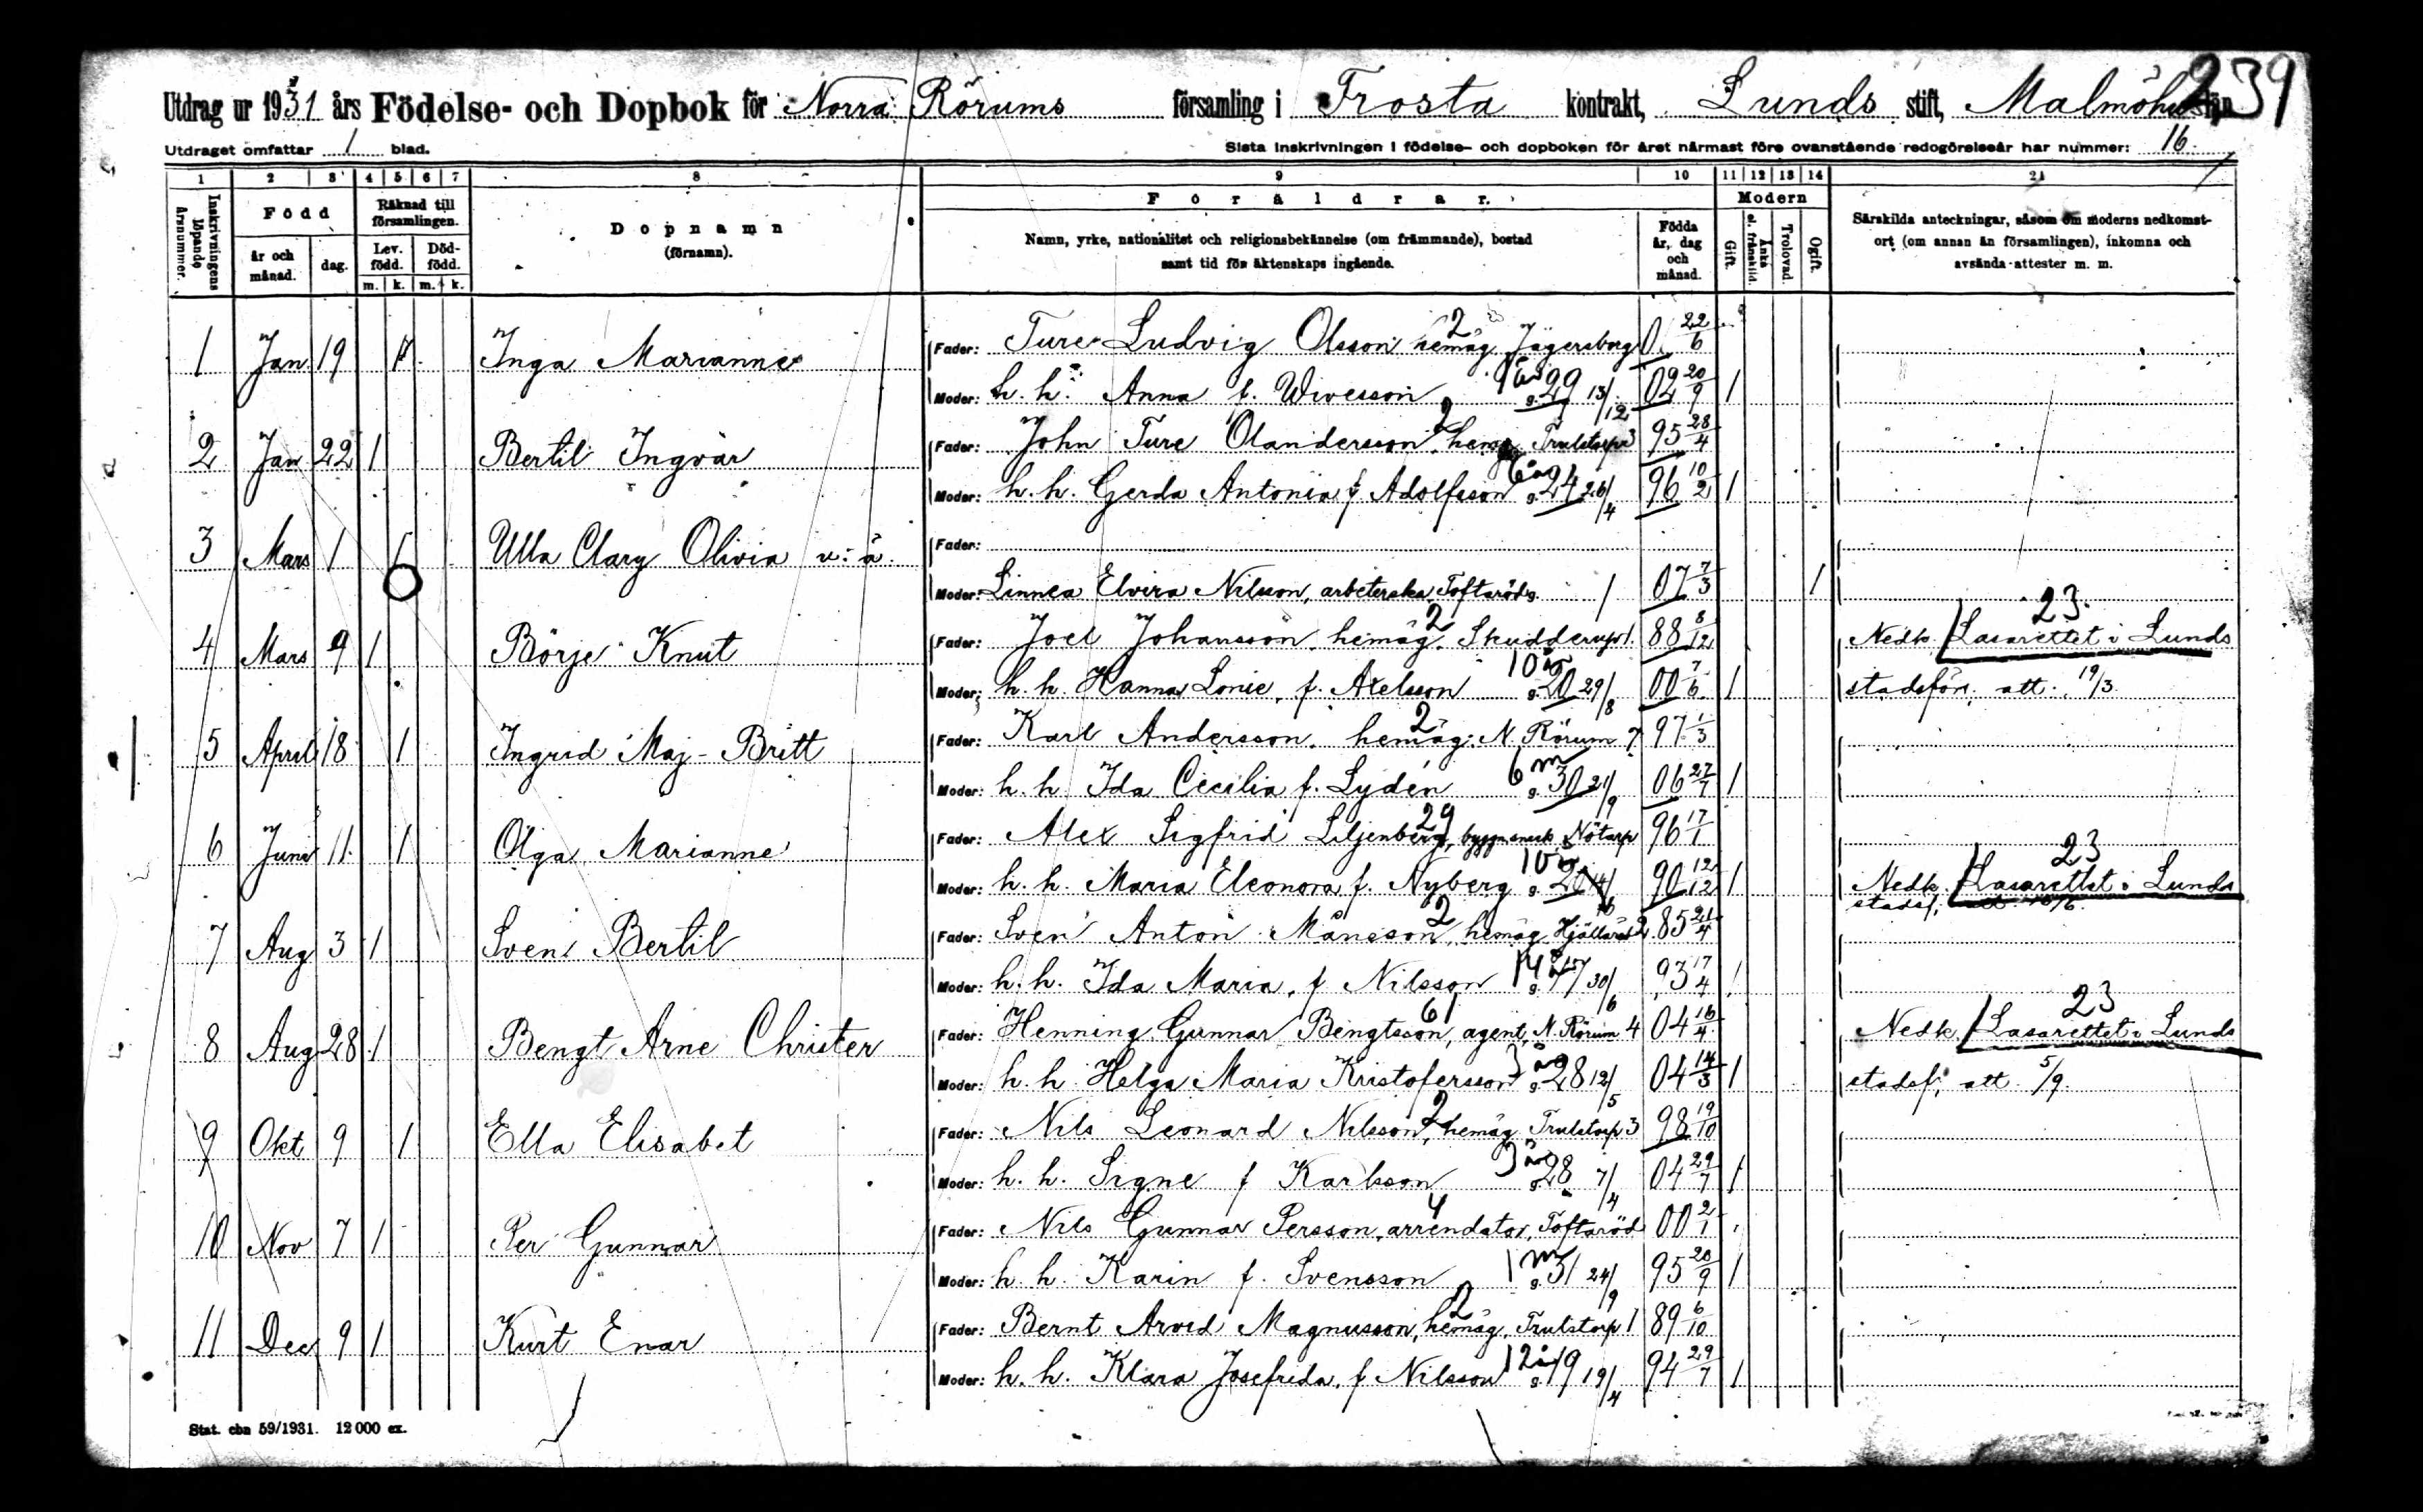 239
Utdrag ur 1931 års Födelse- och Dopbok för Norra Rörums församling i Frosta kontrakt, Lunds stift, Malmöhus län
Utdraget omfattar 1 blad. Sista inskrivningen i födelse- och dopboken för året närmast före ovanstående redogörelseår har nummer: 16.
1 2 3 4 5 6 7 8 9 10 11 12 13 14 21
Inskrivningens löpande årsnummer.
Född
år och månad. dag.
Räknad till församlingen.
Lev. född. Död-född.
m. k. m. k.
Dopnamn
(förnamn).
Föräldrar.
Namn, yrke, nationalitet och religionsbekännelse (om främmande), bostad
samt tid för äktenskaps ingående.
Födda år, dag och månad.
Modern
Gift. Änka el. frånskild. Trolovad. Ogift.
Särskilda anteckningar, såsom om moderns nedkomst-
ort (om annan än församlingen), inkomna och
avsända attester m. m.
1 Jan 19 1 Inga Marianne Fader: Ture Ludvig Olsson hemäg. Jägersborg 2 01 22/6
Moder: h. h. Anna f. Wivesson g. 29 13/12 02 20/9 1
2 Jan 22 1 Bertil Ingvar Fader: John Ture Olandersson, hemäg Trulstorp 3 2 95 28/4
Moder: h. h. Gerda Antonia f. Adolfsson 6 år g. 24 26/4 96 10/2 1
3 Mars 1 1 Ulla Clary Olivia u. ä. Fader:
Moder: Linnea Elvira Nilsson, arbeterska, Toftaröd 1 07 7/3 1
4 Mars 9 1 Börje Knut Fader: Joel Johansson hemäg. Skudderup 1. 2 88 8/12 Nedk. Lasarettet i Lunds 23
Moder: h. h. Hanna Lonie, f. Axelsson 10 år g. 20 29/8 00 7/6 1 stadsförs. att. 19/3.
5 April 18 1 Ingrid Maj-Britt Fader: Karl Andersson, hemäg. N. Rörum 7 2 97 1/3
Moder: h. h. Ida Cecilia f. Lydén 6 m g. 30 21/9 06 27/7 1
6 Juni 11 1 Olga Marianne Fader: Alex Sigfrid Liljenberg, byggn.snick. Nötarp 29 96 17/1
Moder: h. h. Maria Eleonora f. Nyberg 10 år g. 20 90 12/12 1 Nedk. Lasarettet i Lunds 23
stadsf. att.
7 Aug 3 1 Sven Bertil Fader: Sven Anton Månsson, hemäg. Hjällaröd 2 2 85 21/4
Moder: h. h. Ida Maria, f Nilsson 14 år g. 17 30/6 93 17/4 1
8 Aug 28 1 Bengt Arne Christer Fader: Henning Gunnar Bengtsson, agent, N. Rörum 4 61 04 16/4 Nedk. Lasarettet i Lunds 23
Moder: h. h. Helga Maria Kristofersson 3 år g. 28 12/5 04 14/3 1 stadsf. att. 5/9.
9 Okt 9 1 Ella Elisabet Fader: Nils Leonard Nilsson, hemäg Trulstorp 3 2 98 19/10
Moder: h. h. Signe f Karlsson 3 år g. 28 7/4 04 29/7 1
10 Nov 7 1 Per Gunnar Fader: Nils Gunnar Persson, arrendator, Toftaröd 4 00 2/1
Moder: h. h. Karin f. Svensson 1 m g. 31 24/9 95 20/9 1
11 Dec 9 1 Kurt Enar Fader: Bernt Arvid Magnusson, hemäg. Trulstorp 1 2 89 6/10
Moder: h. h. Klara Josefrida, f Nilsson 12 år g. 19 19/4 94 29/7 1
Stat. cba 59/1931. 12 000 ex.